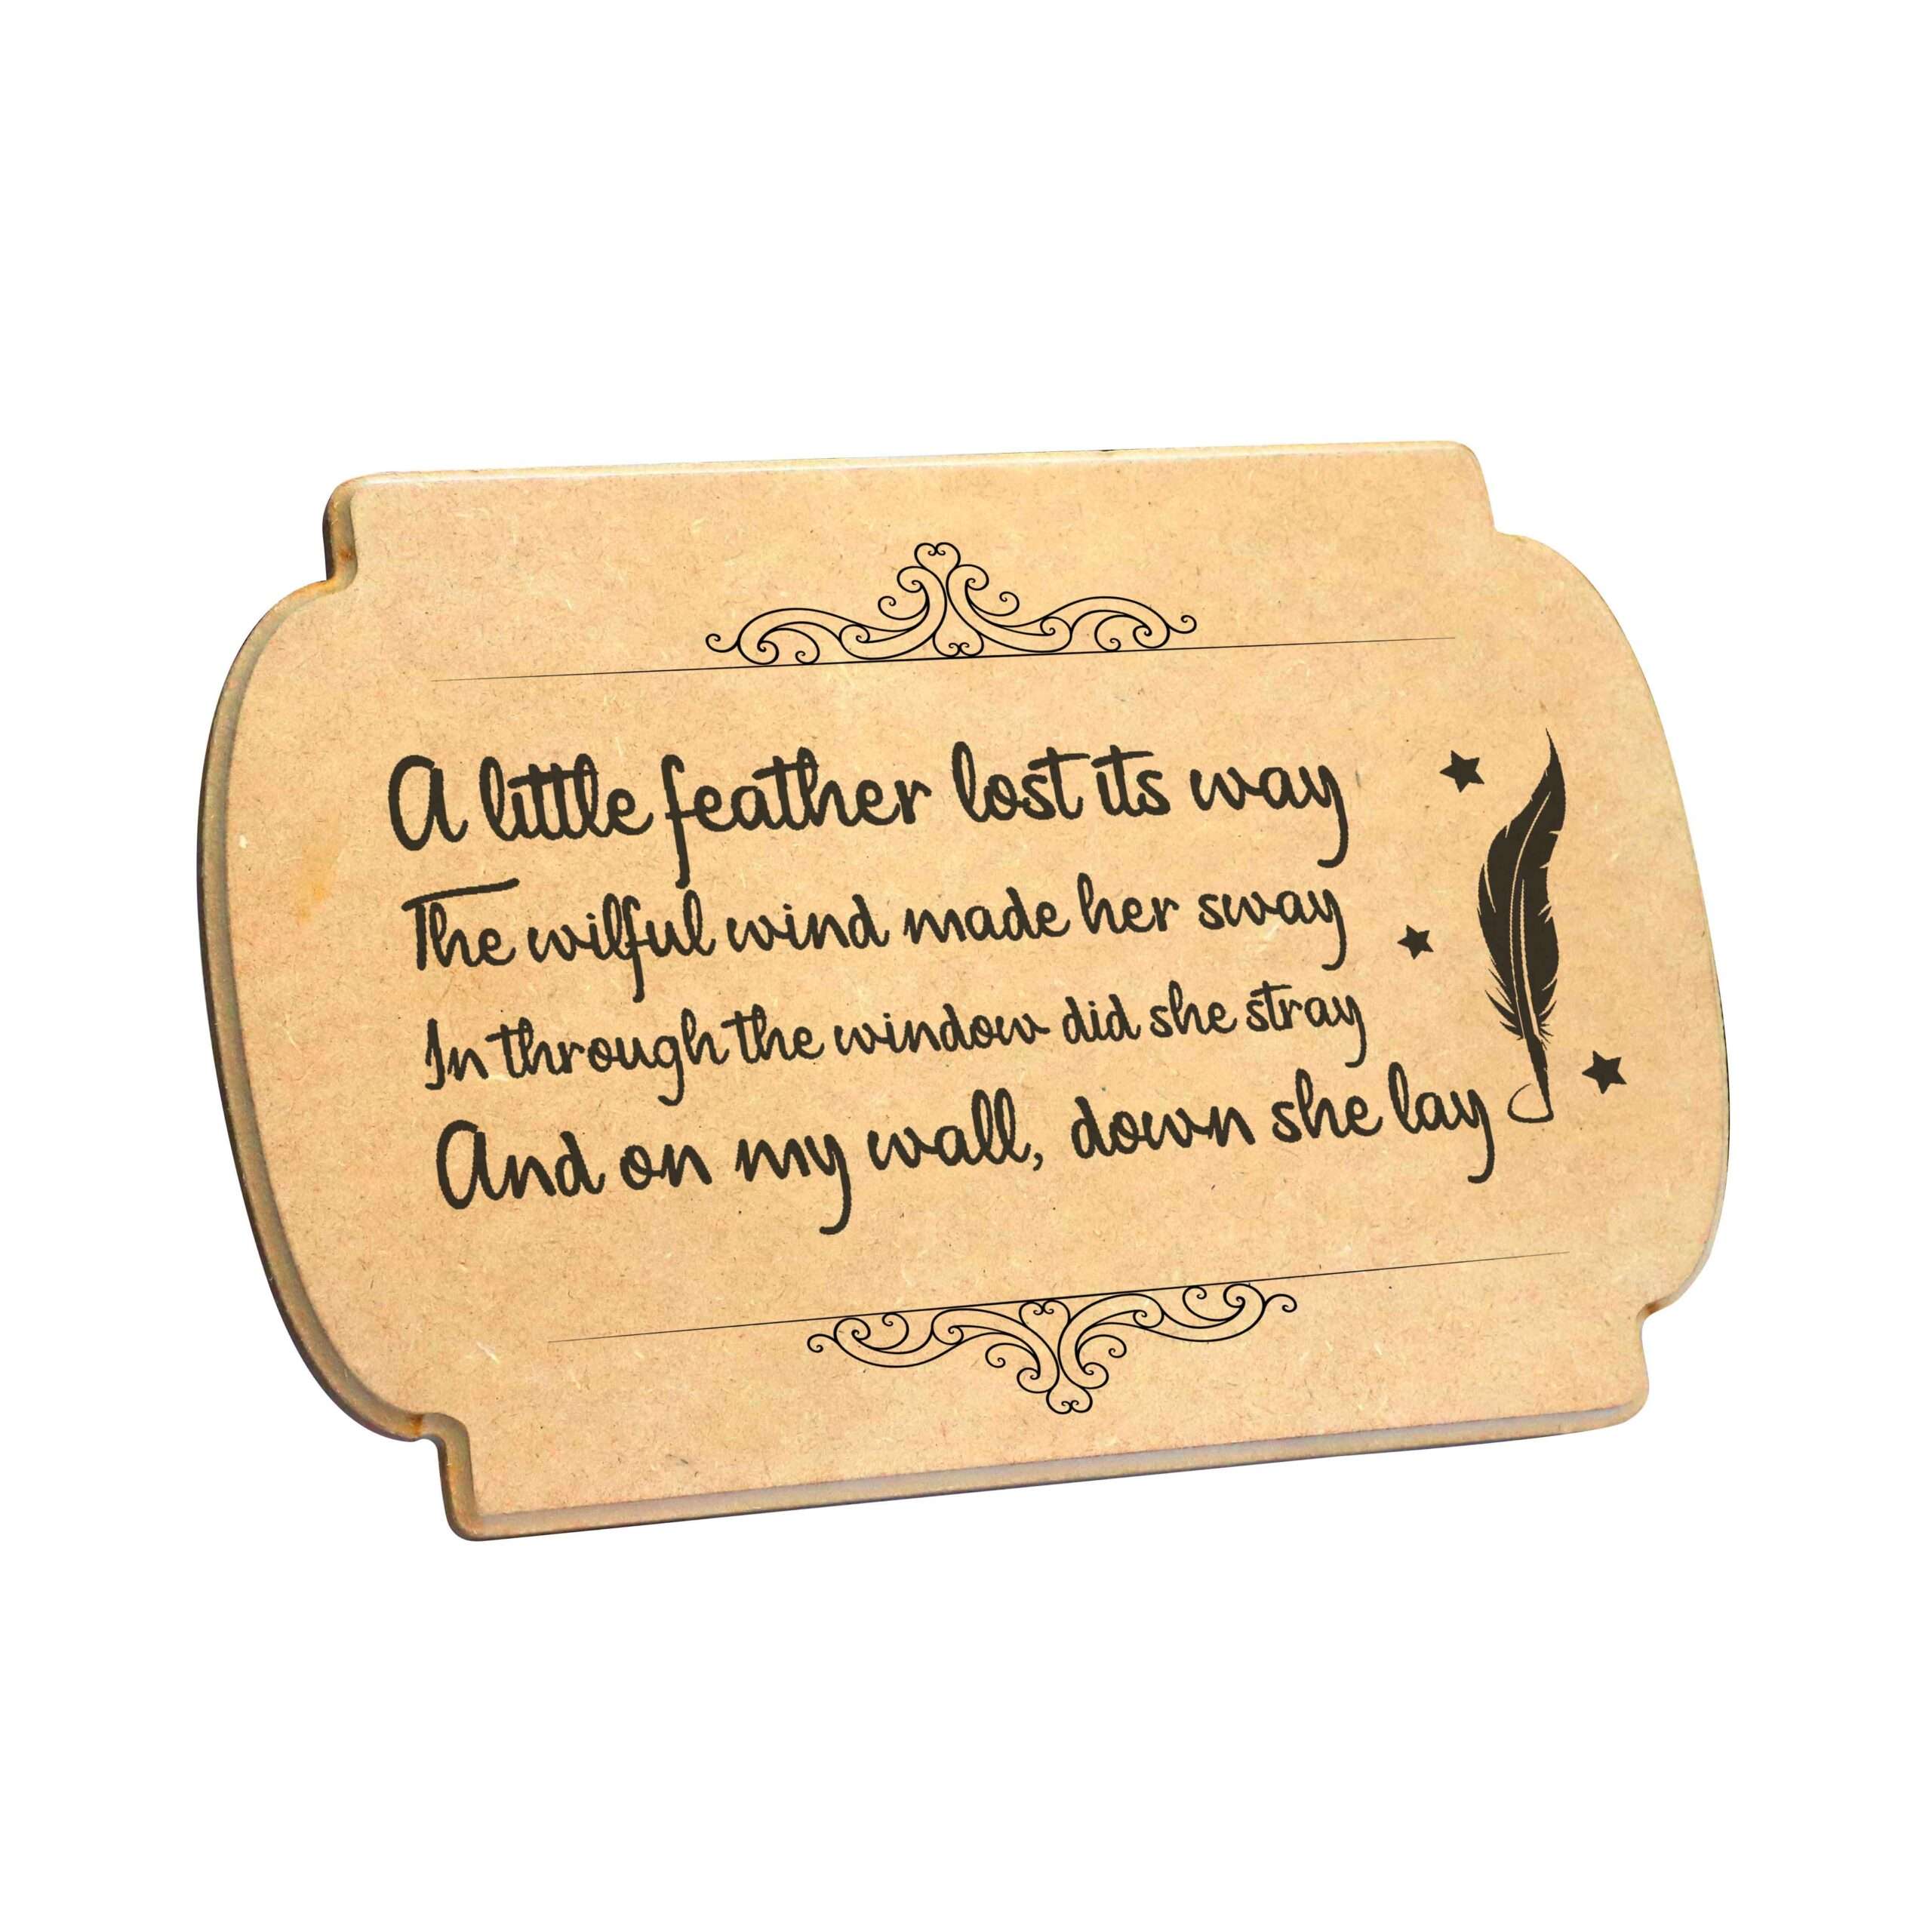 A little feather lost its way
The wilful wind made her sway
In through the window did she stray
And on my wall, down she lay